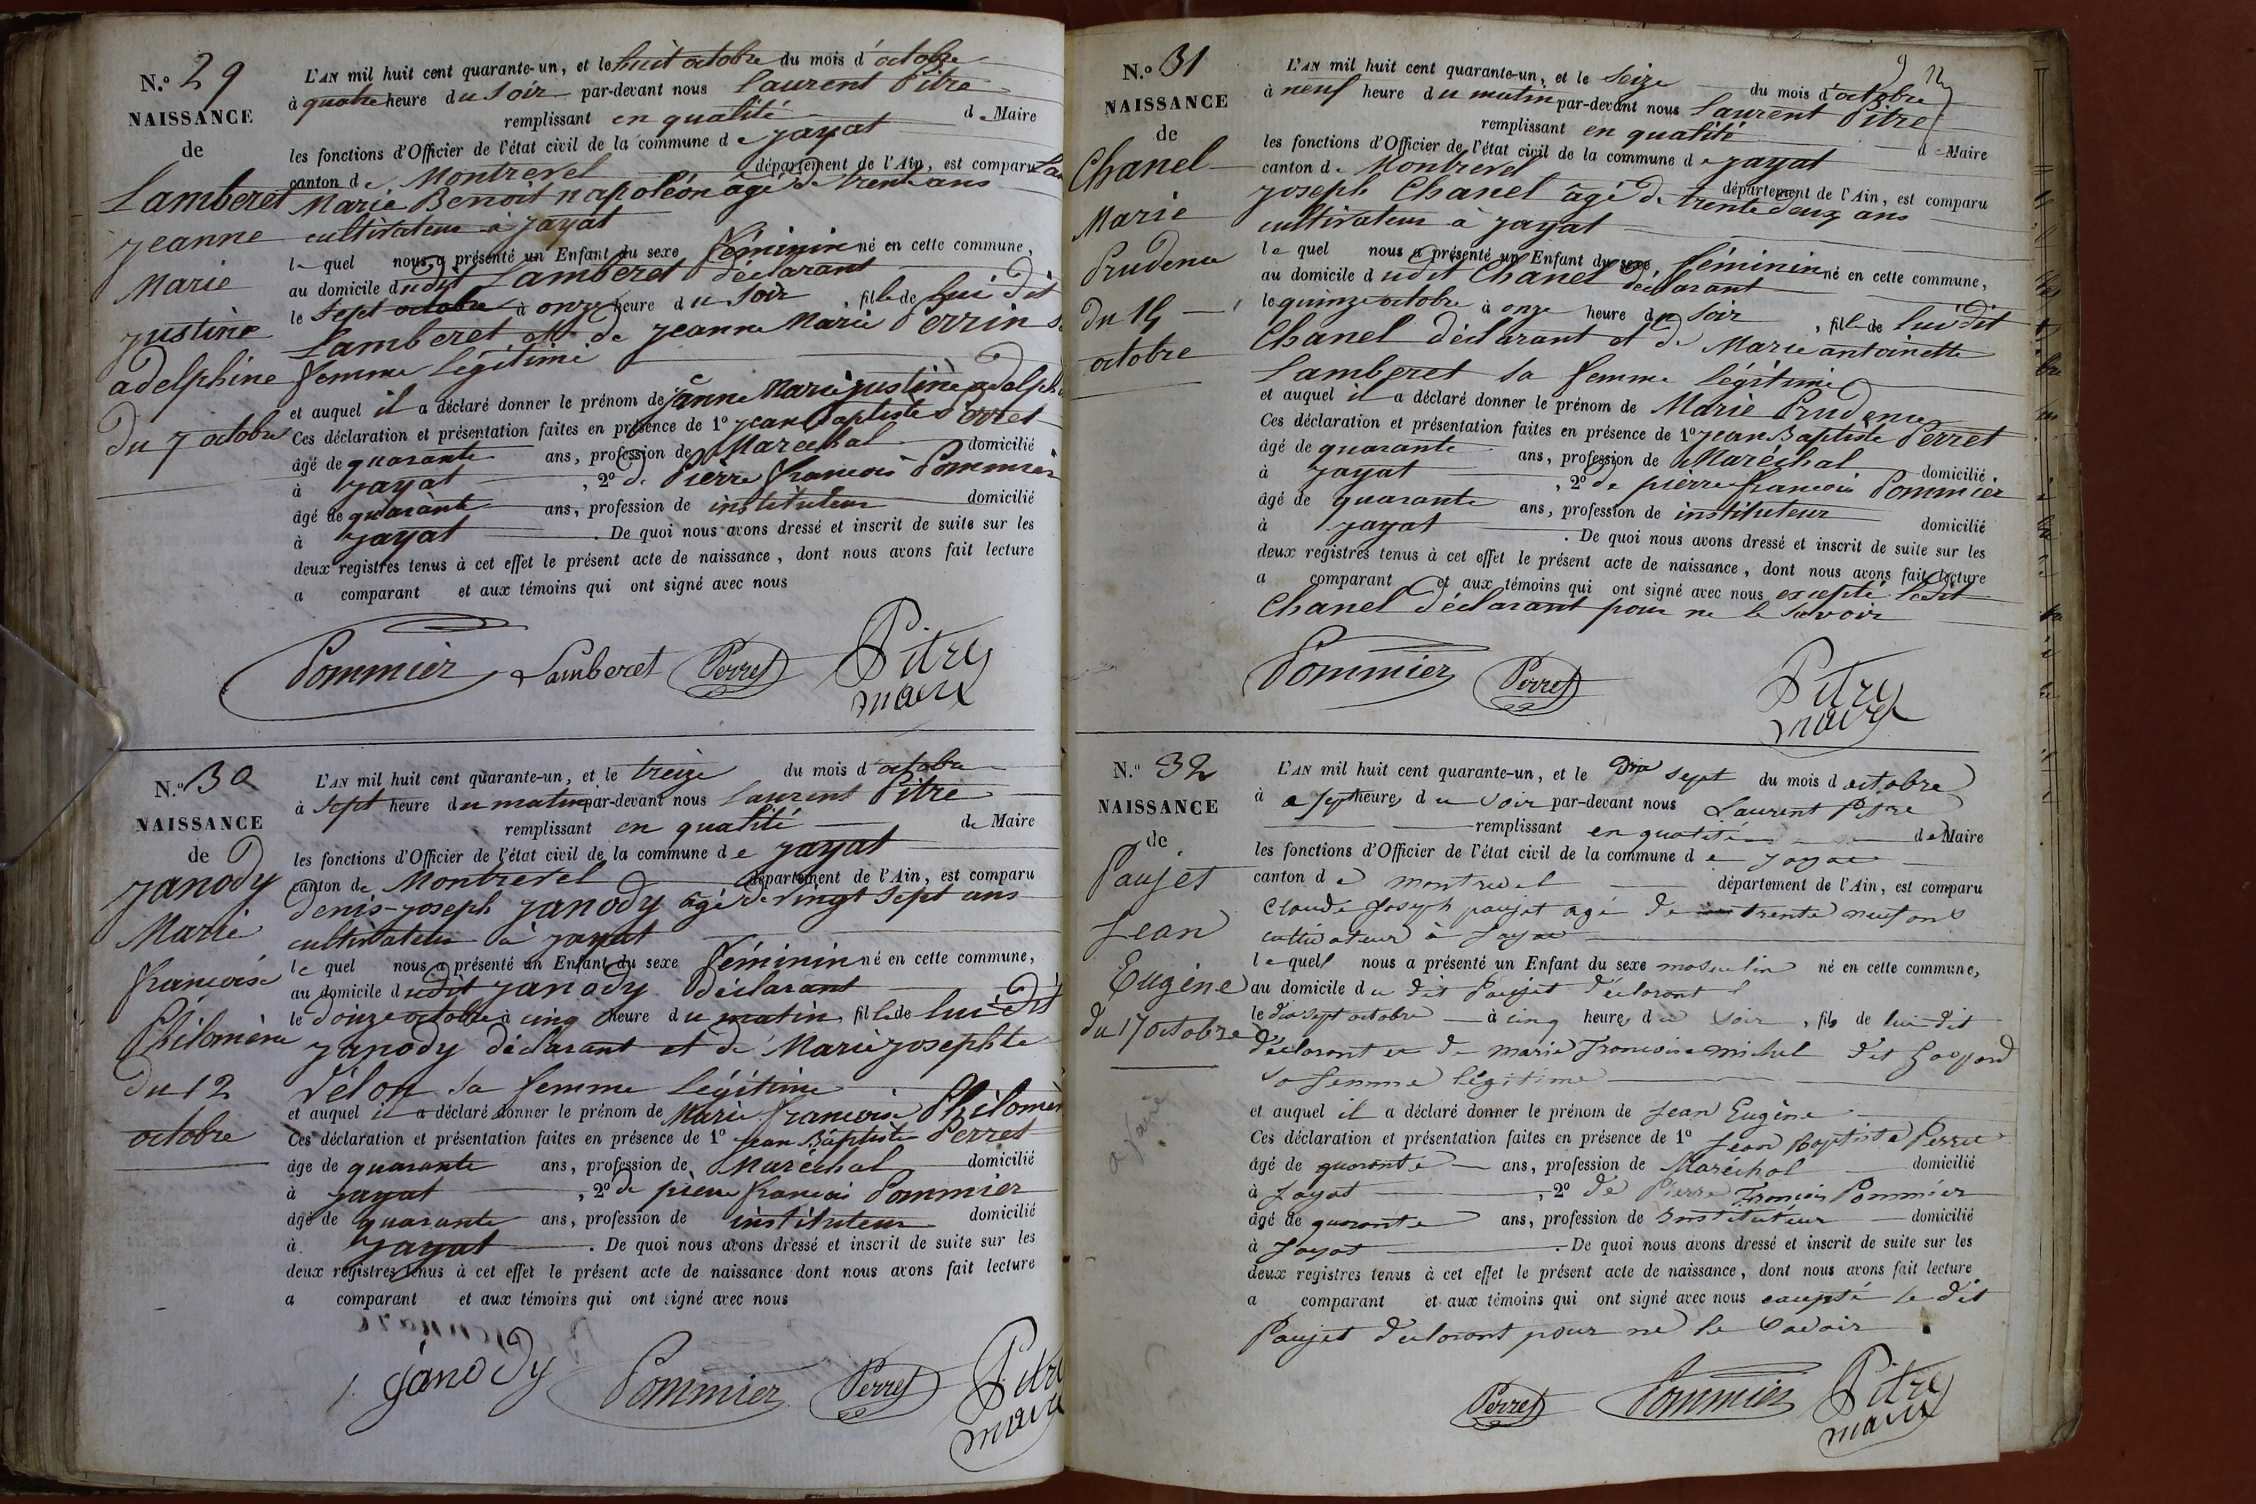 N.º 29
NAISSANCE
de
Lamberet
jeanne
Marie
justine
adelphine
du 7 octobre
L'AN mil huit cent quarante-un, et le huit octobre du mois d'octobre
à quatre heure du soir par-devant nous Laurent Pitre
remplissant en qualité de Maire
les fonctions d'Officier de l'état civil de la commune de jayat
canton de Montrevel département de l'Ain, est comparu
Marie Benoit napoléon âgé de trente ans
cultivateur à jayat
lequel nous a présenté un Enfant du sexe féminin né en cette commune,
au domicile dudit Lamberet déclarant
le sept octobre à onze heure du soir, fille de lui dit
Lamberet et de jeanne Marie Perrin
femme légitime
et auquel il a déclaré donner le prénom de jeanne Marie justine adelph
Ces déclaration et présentation faites en présence de 1º jean Baptiste Perret
âgé de quarante ans, profession de Maréchal domicilié
à jayat, 2º de Pierre françois Pommier
âgé de quarante ans, profession de instituteur domicilié
à jayat. De quoi nous avons dressé et inscrit de suite sur les
deux registres tenus à cet effet le présent acte de naissance, dont nous avons fait lecture
a comparant et aux témoins qui ont signé avec nous
Pommier Lamberet Perret Pitre
maire
N.º 30
NAISSANCE
de
janody
Marie
françoise
Philomène
du 12
octobre
L'AN mil huit cent quarante-un, et le treize du mois d'octobre
à sept heure du matin par-devant nous Laurent Pitre
remplissant en qualité de Maire
les fonctions d'Officier de l'état civil de la commune de jayat
canton de Montrevel département de l'Ain, est comparu
Denis-joseph janody âgé de vingt sept ans
cultivateur à jayat
lequel nous a présenté un Enfant du sexe féminin né en cette commune,
au domicile dudit janody déclarant
le douze octobre à cinq heure du matin, fille de lui dit
janody déclarant et de Marie josephte
Vélon sa femme légitime
et auquel il a déclaré donner le prénom de Marie françoise Philomèn
Ces déclaration et présentation faites en présence de 1º jean Baptiste Perret
âge de quarante ans, profession de Maréchal domicilié
à jayat, 2º de pierre françois Pommier
âgé de quarante ans, profession de instituteur domicilié
à jayat. De quoi nous avons dressé et inscrit de suite sur les
deux registres tenus à cet effet le présent acte de naissance dont nous avons fait lecture
a comparant et aux témoins qui ont signé avec nous
janody Pommier Perret Pitre
maire
N.º 31
NAISSANCE
de
Chanel
Marie
Prudence
du 15
octobre
L'AN mil huit cent quarante-un, et le seize du mois d'octobre
à neuf heure du matin par-devant nous Laurent Pitre
remplissant en qualité de Maire
les fonctions d'Officier de l'état civil de la commune de jayat
canton de Montrevel département de l'Ain, est comparu
joseph Chanel âgé de trente deux ans
cultivateur à jayat
lequel nous a présenté un Enfant du sexe féminin né en cette commune,
au domicile dudit Chanel déclarant
le quinze octobre à onze heure du soir, fille de lui dit
Chanel déclarant et de Marie antoinette
Lamberet sa femme légitime
et auquel il a déclaré donner le prénom de Marie Prudence
Ces déclaration et présentation faites en présence de 1º jean Baptiste Perret
âgé de quarante ans, profession de Maréchal domicilié
à jayat, 2º de pierre françois Pommier
âgé de quarante ans, profession de instituteur domicilié
à jayat. De quoi nous avons dressé et inscrit de suite sur les
deux registres tenus à cet effet le présent acte de naissance, dont nous avons fait lecture
a comparant et aux témoins qui ont signé avec nous excepté ledit
Chanel déclarant pour ne le savoir
Pommier Perret Pitre
maire
N.º 32
NAISSANCE
de
Paujet
Jean
Eugène
du 17 octobre
L'AN mil huit cent quarante-un, et le Dix sept du mois d octobre
à sept heures du soir par-devant nous Laurent Pitre
remplissant en qualité de Maire
les fonctions d'Officier de l'état civil de la commune de Jayat
canton de montrevel département de l'Ain, est comparu
Claude Joseph paujet agé de trente neuf ans
cultivateur à Jayat
lequel nous a présenté un Enfant du sexe masculin né en cette commune,
au domicile du dit Paujet déclarant
le dix sept octobre à cinq heures du soir, fils de lui dit
déclarant et de marie Francoise michel dit
sa femme légitime
et auquel il a déclaré donner le prénom de Jean Eugène
Ces déclaration et présentation faites en présence de 1º Jean Baptiste Perret
âgé de quarante ans, profession de Maréchal domicilié
à Jayat, 2º de Pierre François Pommier
âgé de quarante ans, profession de Instituteur domicilié
à Jayat. De quoi nous avons dressé et inscrit de suite sur les
deux registres tenus à cet effet le présent acte de naissance, dont nous avons fait lecture
a comparant et aux témoins qui ont signé avec nous excepté le dit
Paujet déclarant pour ne le savoir
Perret Pommier Pitre
maire